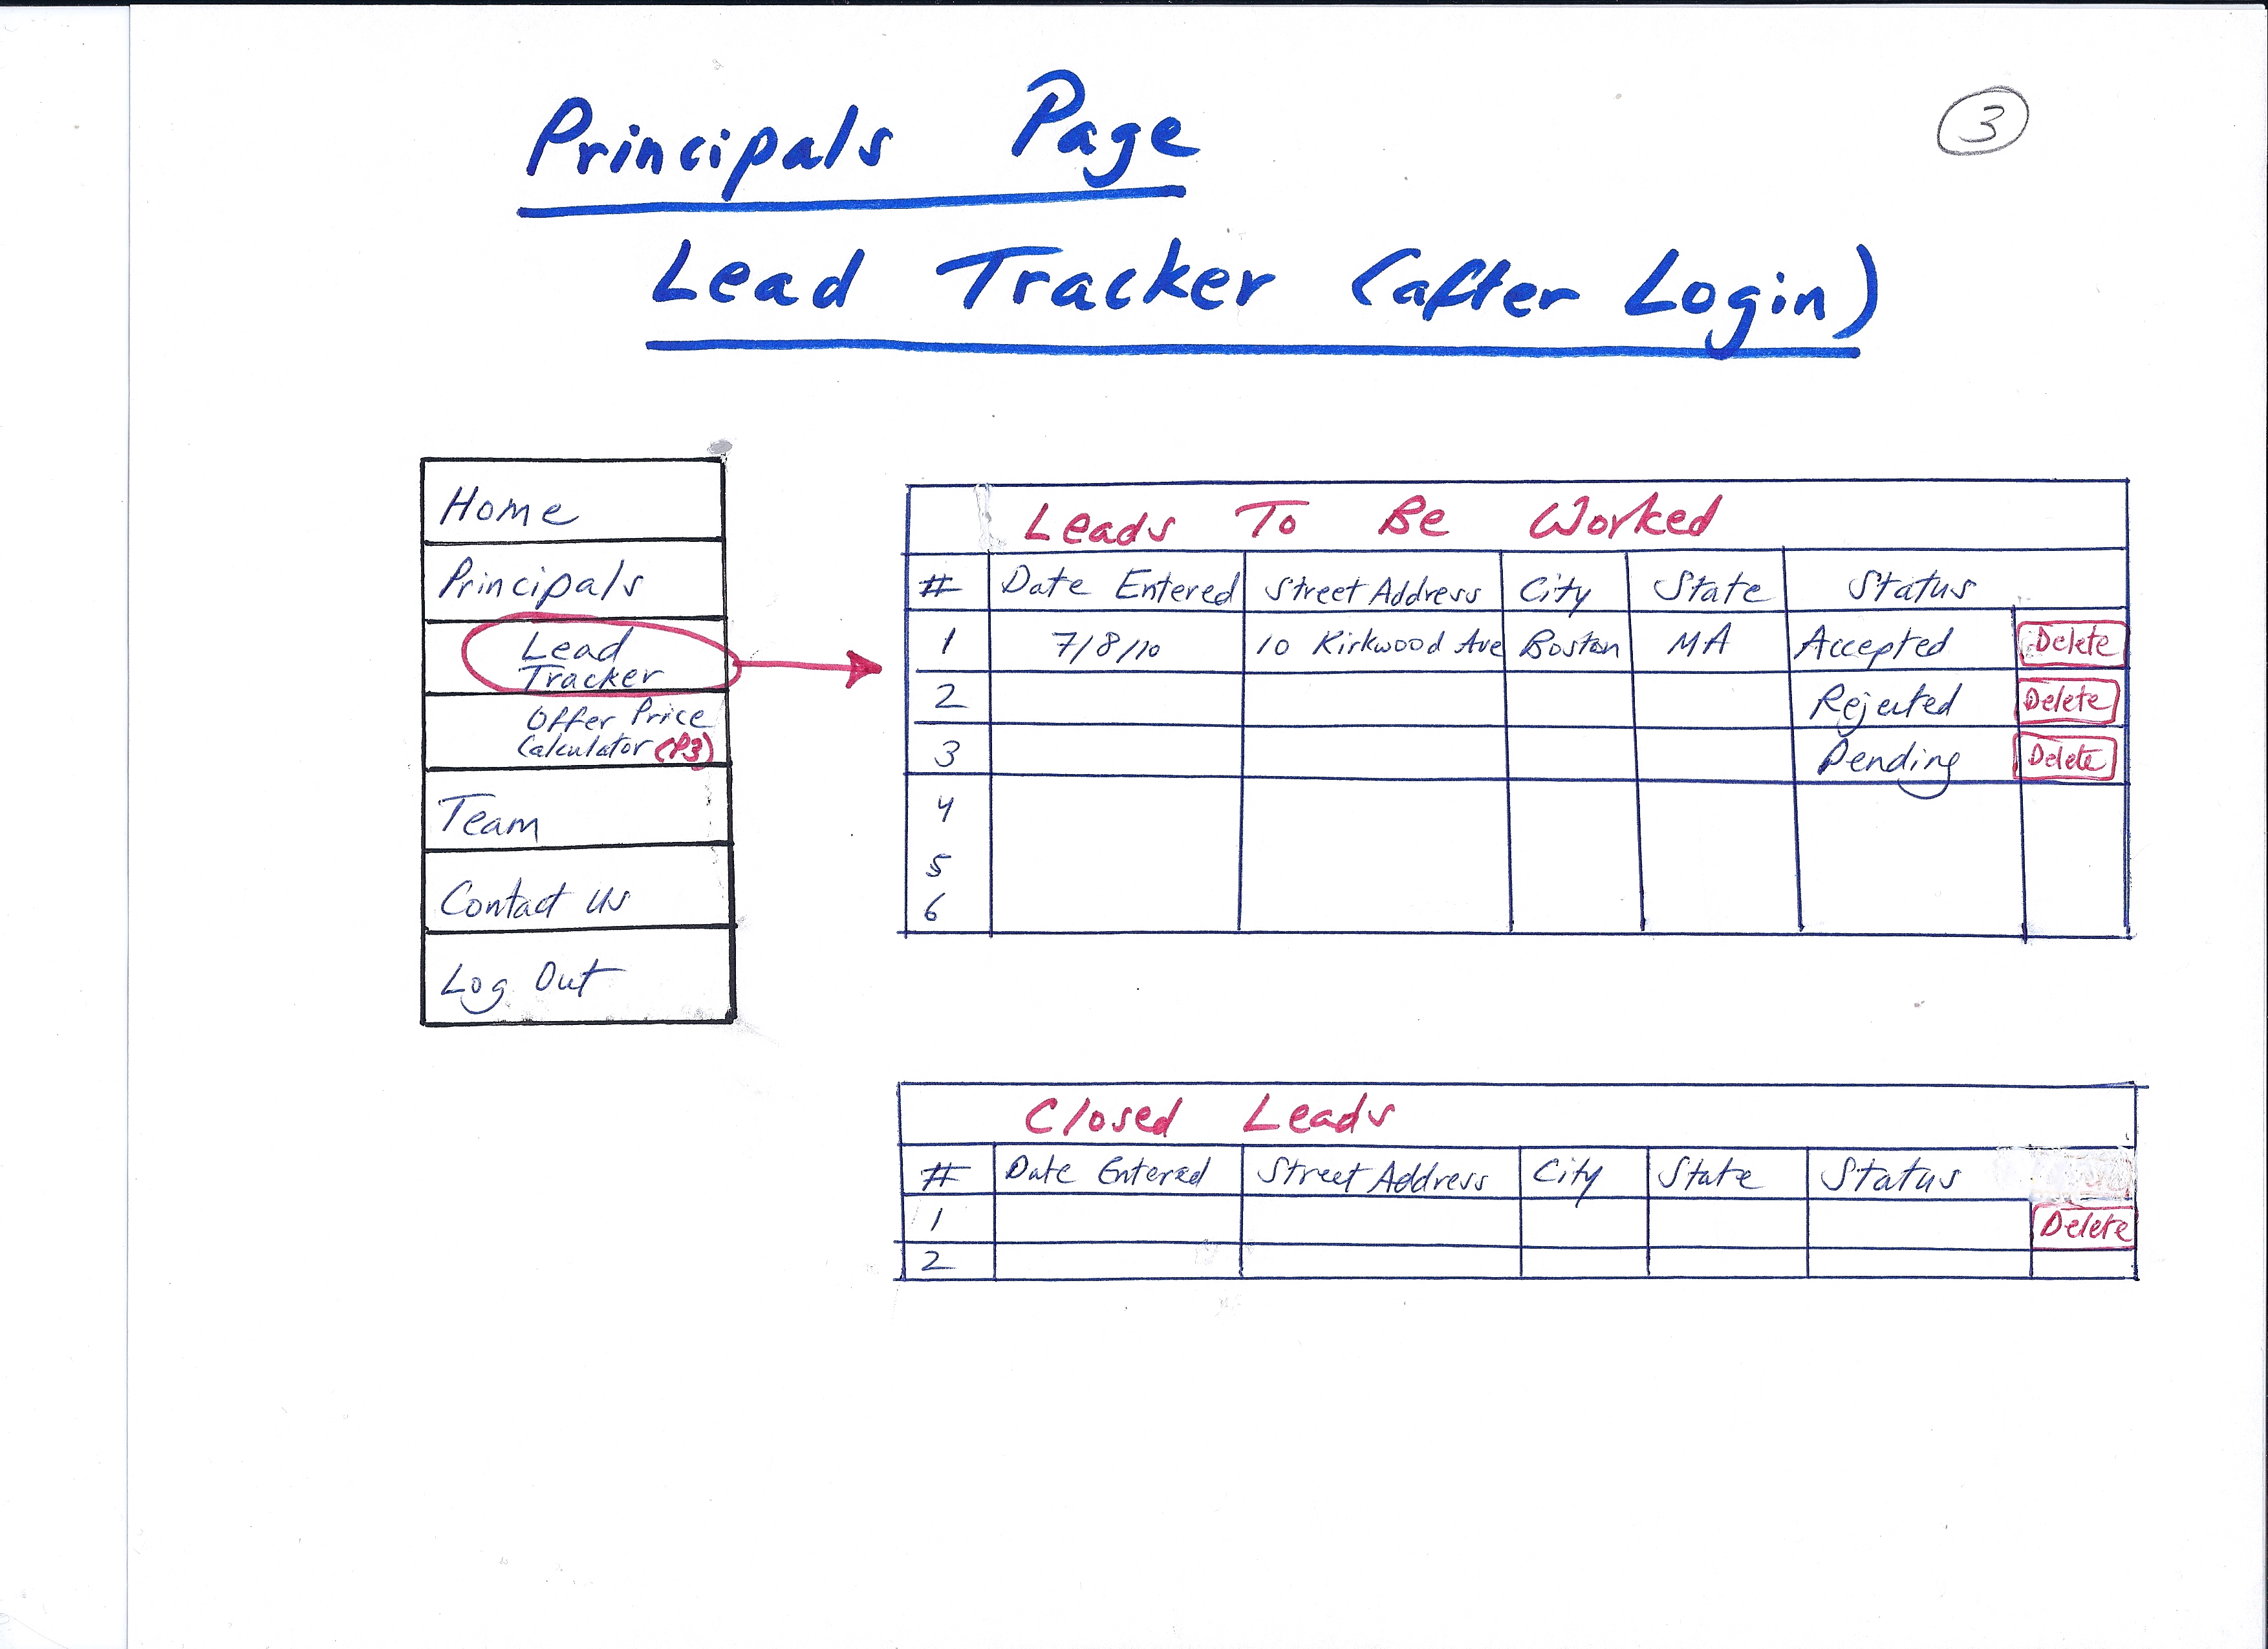 Principals Page
3
Lead Tracker (after Login)
Home
Principals
Lead
Tracker
Offer Price
Calculator (P3)
Team
Contact Us
Log Out
Leads To Be Worked
# Date Entered Street Address City State Status
1 7/8/10 10 Kirkwood Ave Boston MA Accepted Delete
2 Rejected Delete
3 Pending Delete
4
5
6
Closed Leads
# Date Entered Street Address City State Status
1 Delete
2